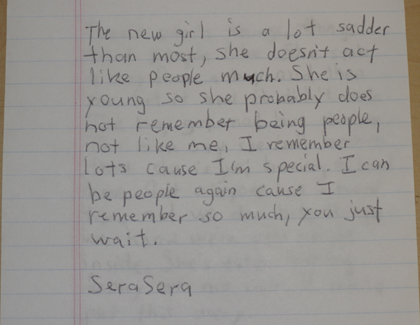 The new girl is a lot sadder
than most, she doesn't act
like people much. She is
young so she probably does
not remember being people,
not like me, I remember
lots cause I'm special. I can
be people again cause I
remember so much, you just
wait.
SeraSera